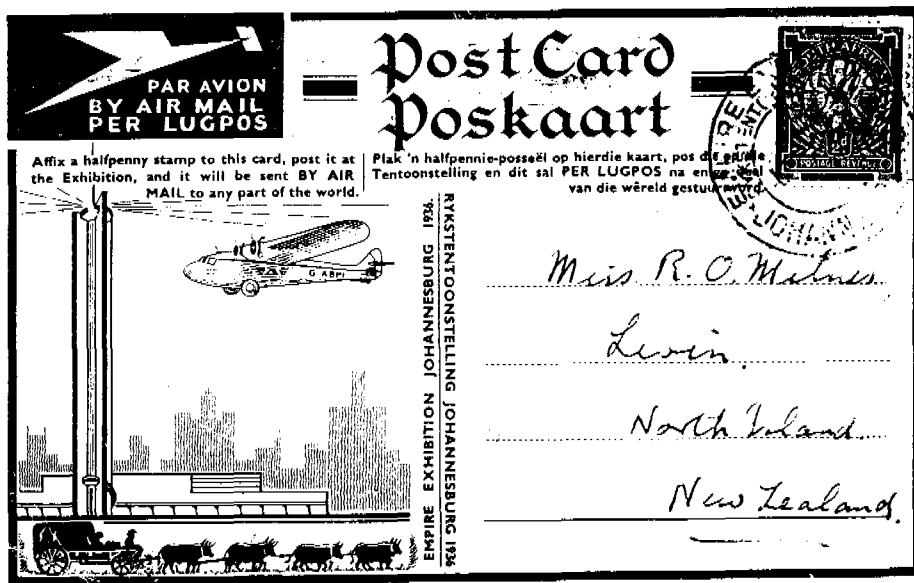 PAR AVION
BY AIR MAIL
PER LUGPOS
Post Card
Poskaart
Affix a halfpenny stamp to this card, post it at
the Exhibition, and it will be sent BY AIR
MAIL to any part of the world.
Plak 'n halfpennie-posseël op hierdie kaart, pos dit
Tentoonstelling en dit sal PER LUGPOS na enige deel
van die wêreld gestuur word.
SOUTH AFRICA
½d
POSTAGE REVENUE
G-ABPI
EMPIRE EXHIBITION JOHANNESBURG 1936.
RYKSTENTOONSTELLING JOHANNESBURG 1936
Miss R. O. Milnes
Levin.
North Island
New Zealand.